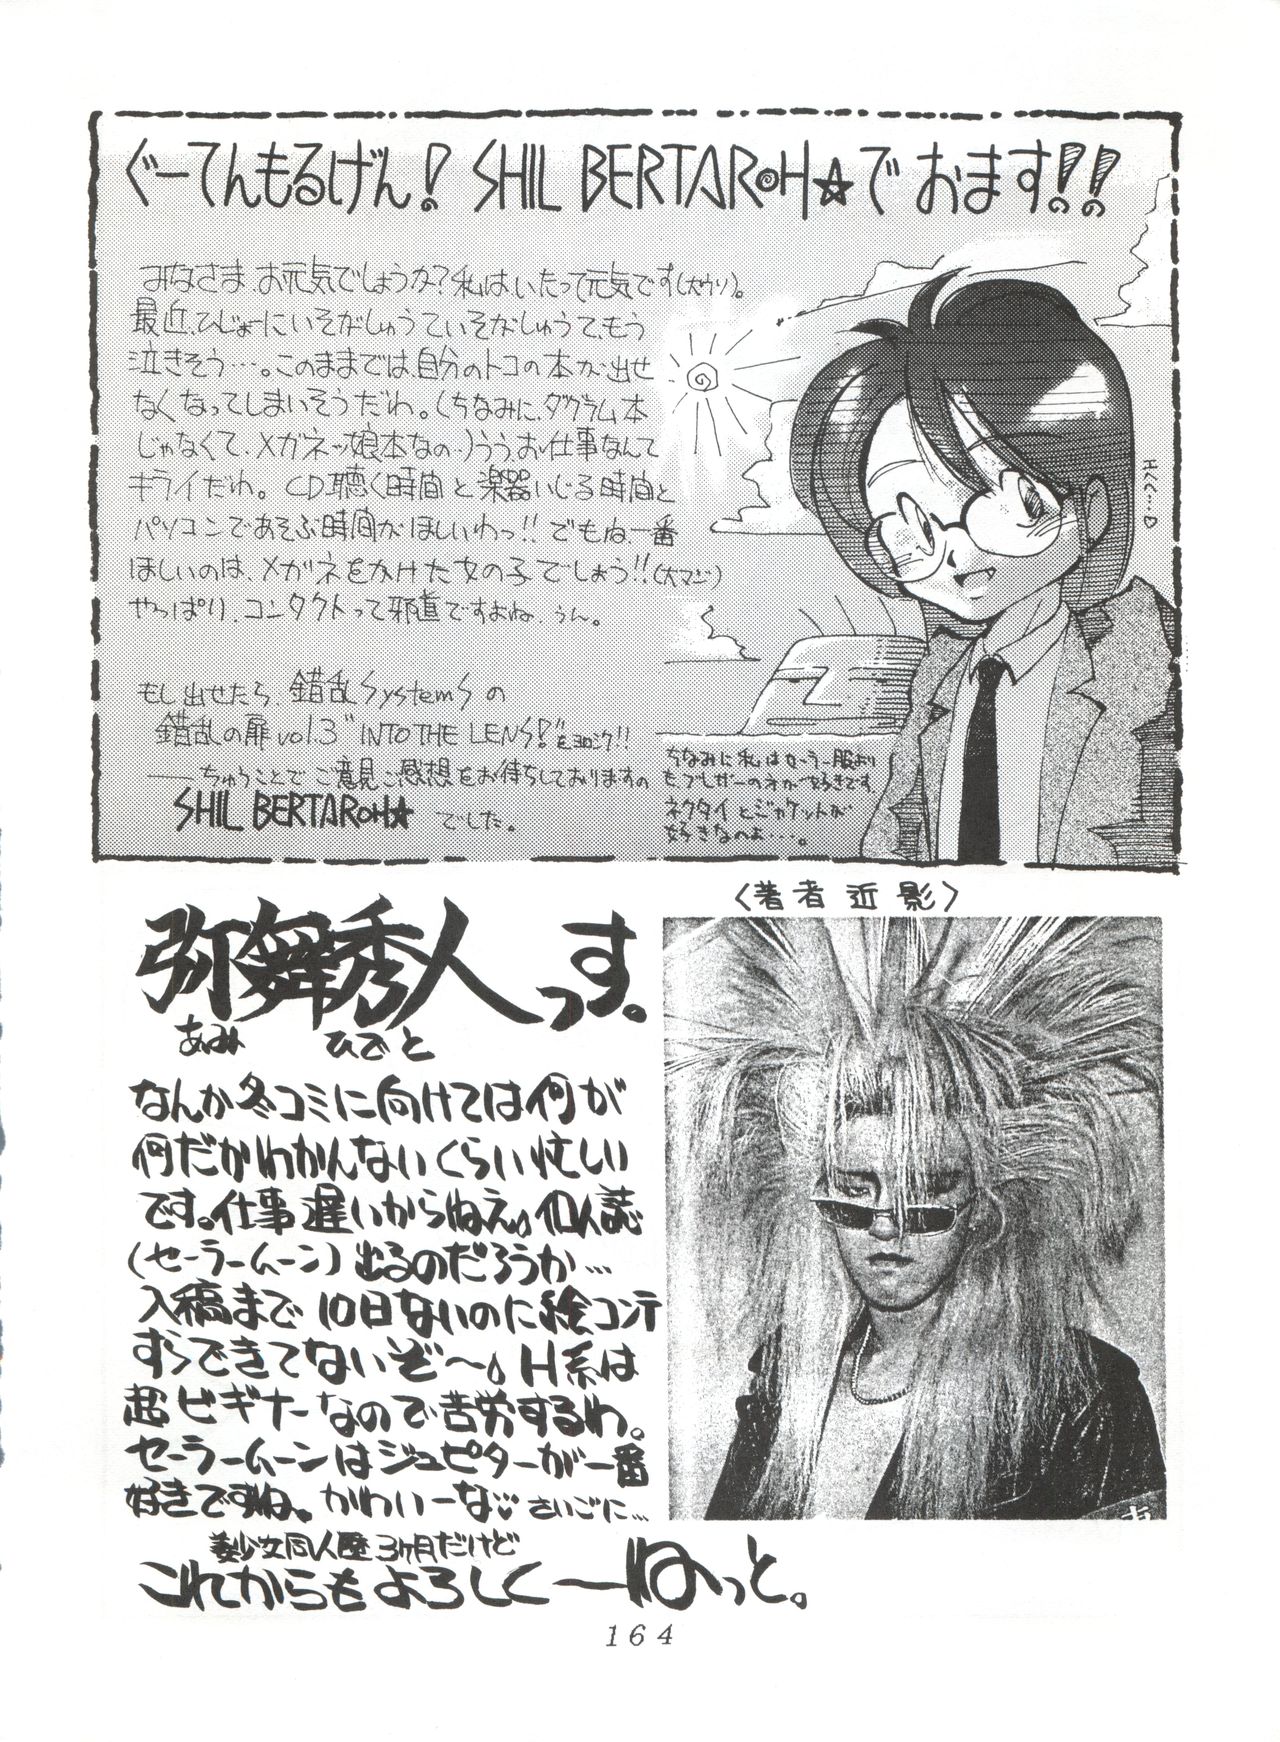 ぐーてんもるげん! SHIL BERTAROH☆でおます!!
みなさまお元気でしょうか?私はいたって元気です(大ウソ)。
最近、ひじょーにいそがしゅうていそがしゅうて、もう
泣きそう…。このままでは、自分のトコの本が出せ
なくなってしまいそうだわ。(ちなみに、ダグラム本
じゃなくて、メガネッ娘本なの…)ううぅお仕事なんて
キライだわ。CD聴く時間と楽器いじる時間と
パソコンであそぶ時間がほしいわっ!!でもね一番
ほしいのは、メガネをかけた女の子でしょう!!(大マジ)
やっぱり、コンタクトって邪道ですよね、うん。
もし出せたら、錯乱SystemSの
錯乱の扉vol.3"INTO THE LENS!"をヨロシク!!
――ちゅうことでご意見ご感想をお待ちしておりますの
SHIL BERTAROH☆でした。
ちなみに私はセーラー服より
も、ブレザーの方が好きです。
ネクタイとジャケットが
好きなのよ…。
〈著者近影〉
弥舞秀人っす。
あみ ひでと
なんか冬コミに向けては何が
何だかわかんないくらい忙しい
です。仕事遅いからねえ。個人誌
(セーラームーン)出るのだろうか…
入稿まで10日ないのに絵コンテ
すらできてないぞ〜。H系は
超ビギナーなので苦労するわ。
セーラームーンはジュピターが一番
好きですね。かわいーな♡さいごに…
美少女同人歴3ヶ月だけど
これからもよろしく〜ねっと。
164